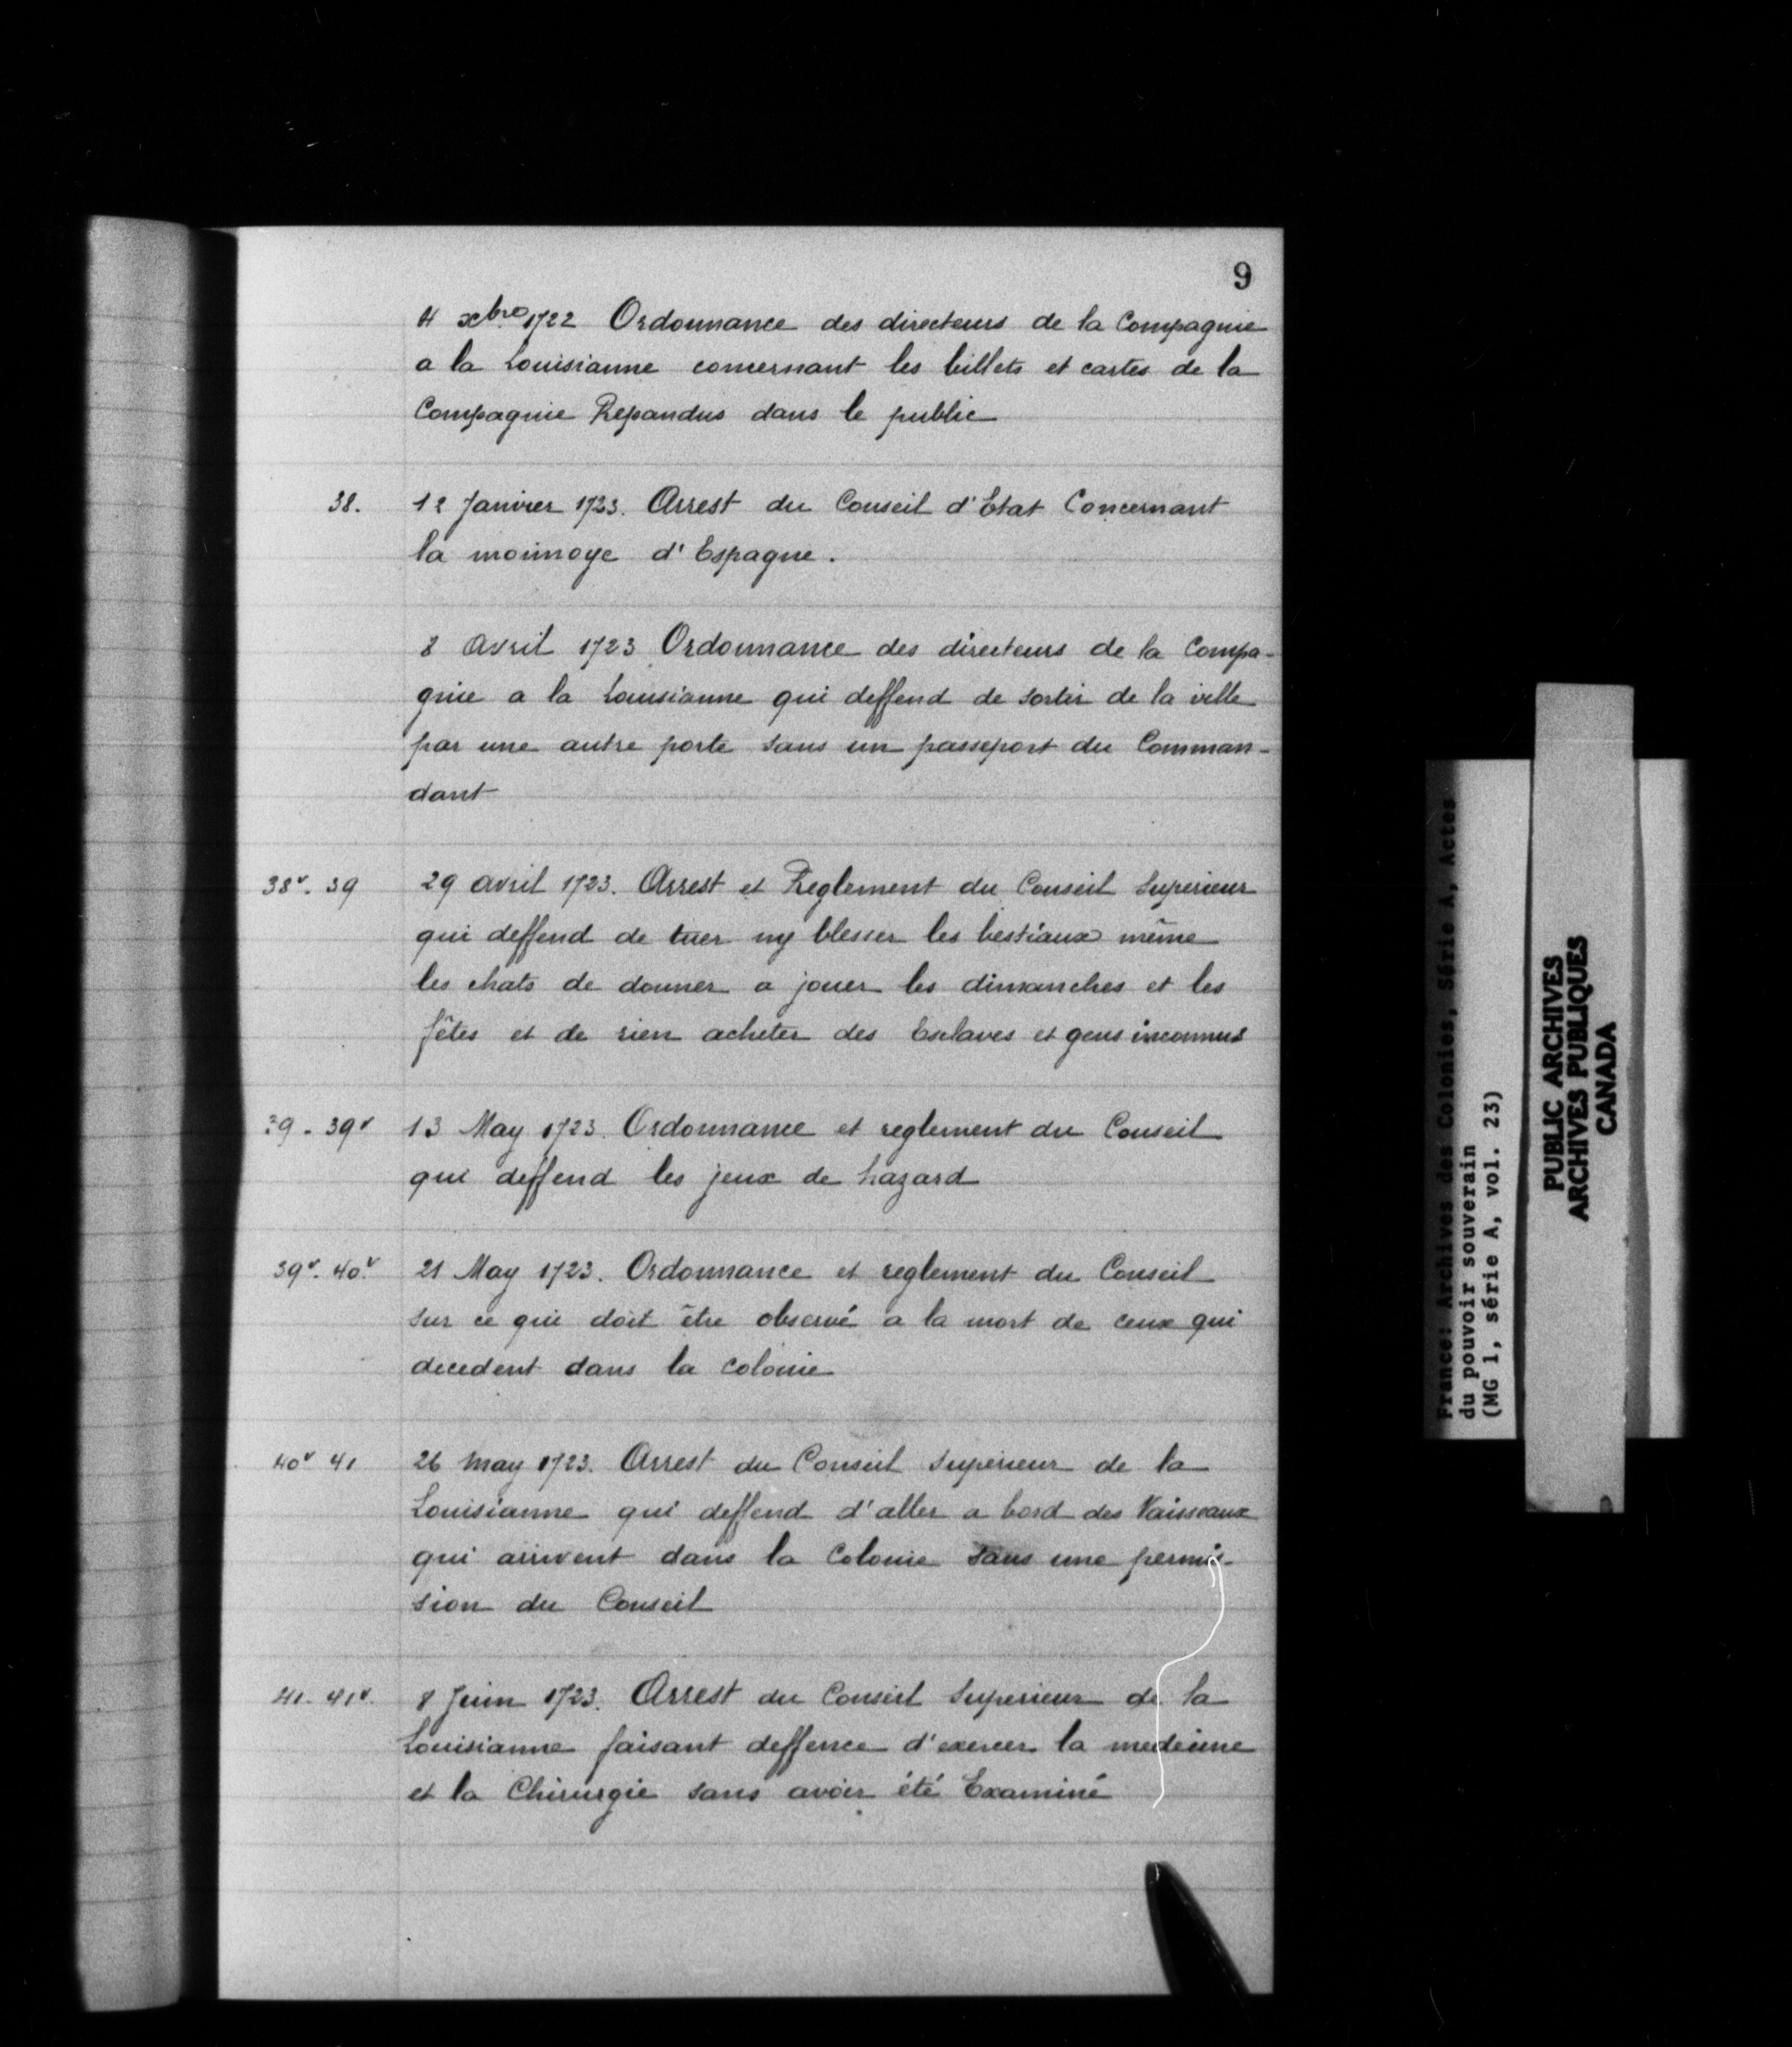 9
4 xbre 1722 Ordonnance des directeurs de la Compagnie
a la Louisianne concernant les billets et cartes de la
Compagnie Repandus dans le public
38. 12 Janvier 1723. Arrest du Conseil d'Etat Concernant
la monnoye d'Espagne.
8 avril 1723 Ordonnance des directeurs de la Compa-
gnie a la Louisianne qui deffend de sortir de la ville
par une autre porte sans un passeport du Comman-
dant
38v. 39 29 avril 1723. Arrest et Reglement du Conseil Superieur
qui deffend de tuer ny blesser les bestiaux même
les chats de donner a jouer les dimanches et les
fêtes et de rien acheter des Esclaves et gens inconnus
39 - 39v 13 May 1723. Ordonnance et reglement du Conseil
qui deffend les jeux de hazard
39v. 40v 21 May 1723. Ordonnance et reglement du Conseil
sur ce qui doit être observé a la mort de ceux qui
decedent dans la colonie
40v 41 26 may 1723. Arrest du Conseil Superieur de la
Louisianne qui deffend d'aller a bord des Vaisseaux
qui arrivent dans la Colonie sans une permis-
sion du Conseil
41. 41v. 8 Juin 1723. Arrest du Conseil Superieur de la
Louisianne faisant deffence d'exercer la medecine
et la Chirurgie sans avoir été Examiné
France: Archives des Colonies, Série A, Actes
du pouvoir souverain
(MG 1, série A, vol. 23)
PUBLIC ARCHIVES
ARCHIVES PUBLIQUES
CANADA